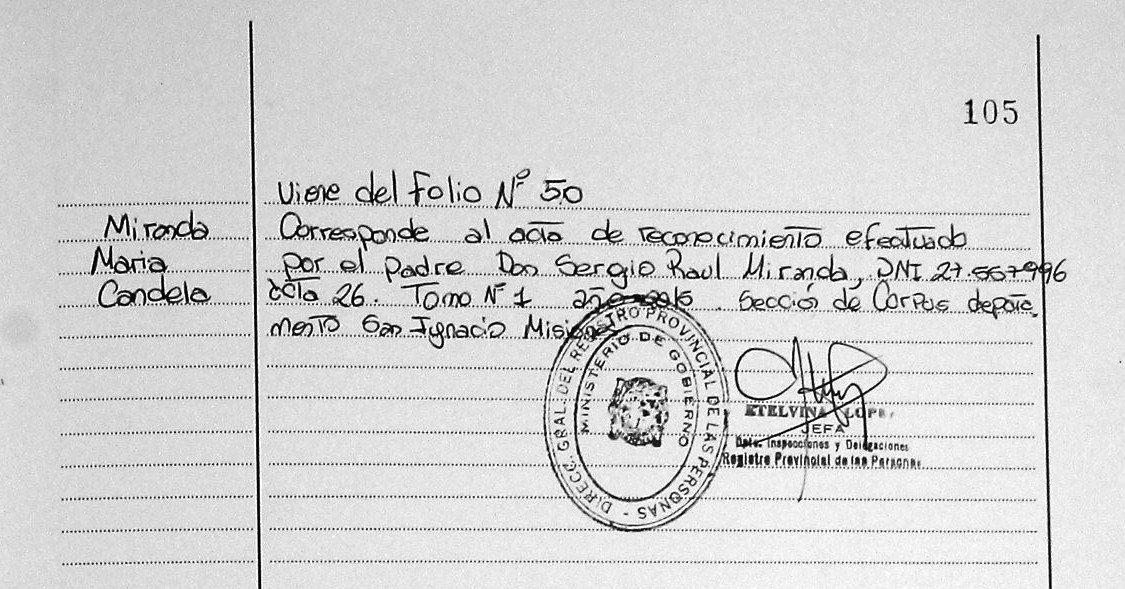 105
Viene del folio Nº 50
Miranda Corresponde al acta de reconocimiento efectuado
Maria por el padre Don Sergio Raul Miranda, DNI 27.557996
Candela acta 26. Tomo Nº 1 año 2015. Sección de Corpus departa
mento San Ignacio Misiones
DIRECC. GRAL. DEL REGISTRO PROVINCIAL DE LAS PERSONAS -
MINISTERIO DE GOBIERNO
ETELVINA LOPE
JEFA
Dpto. Inspecciones y Delegaciones
Registro Provincial de las Personas